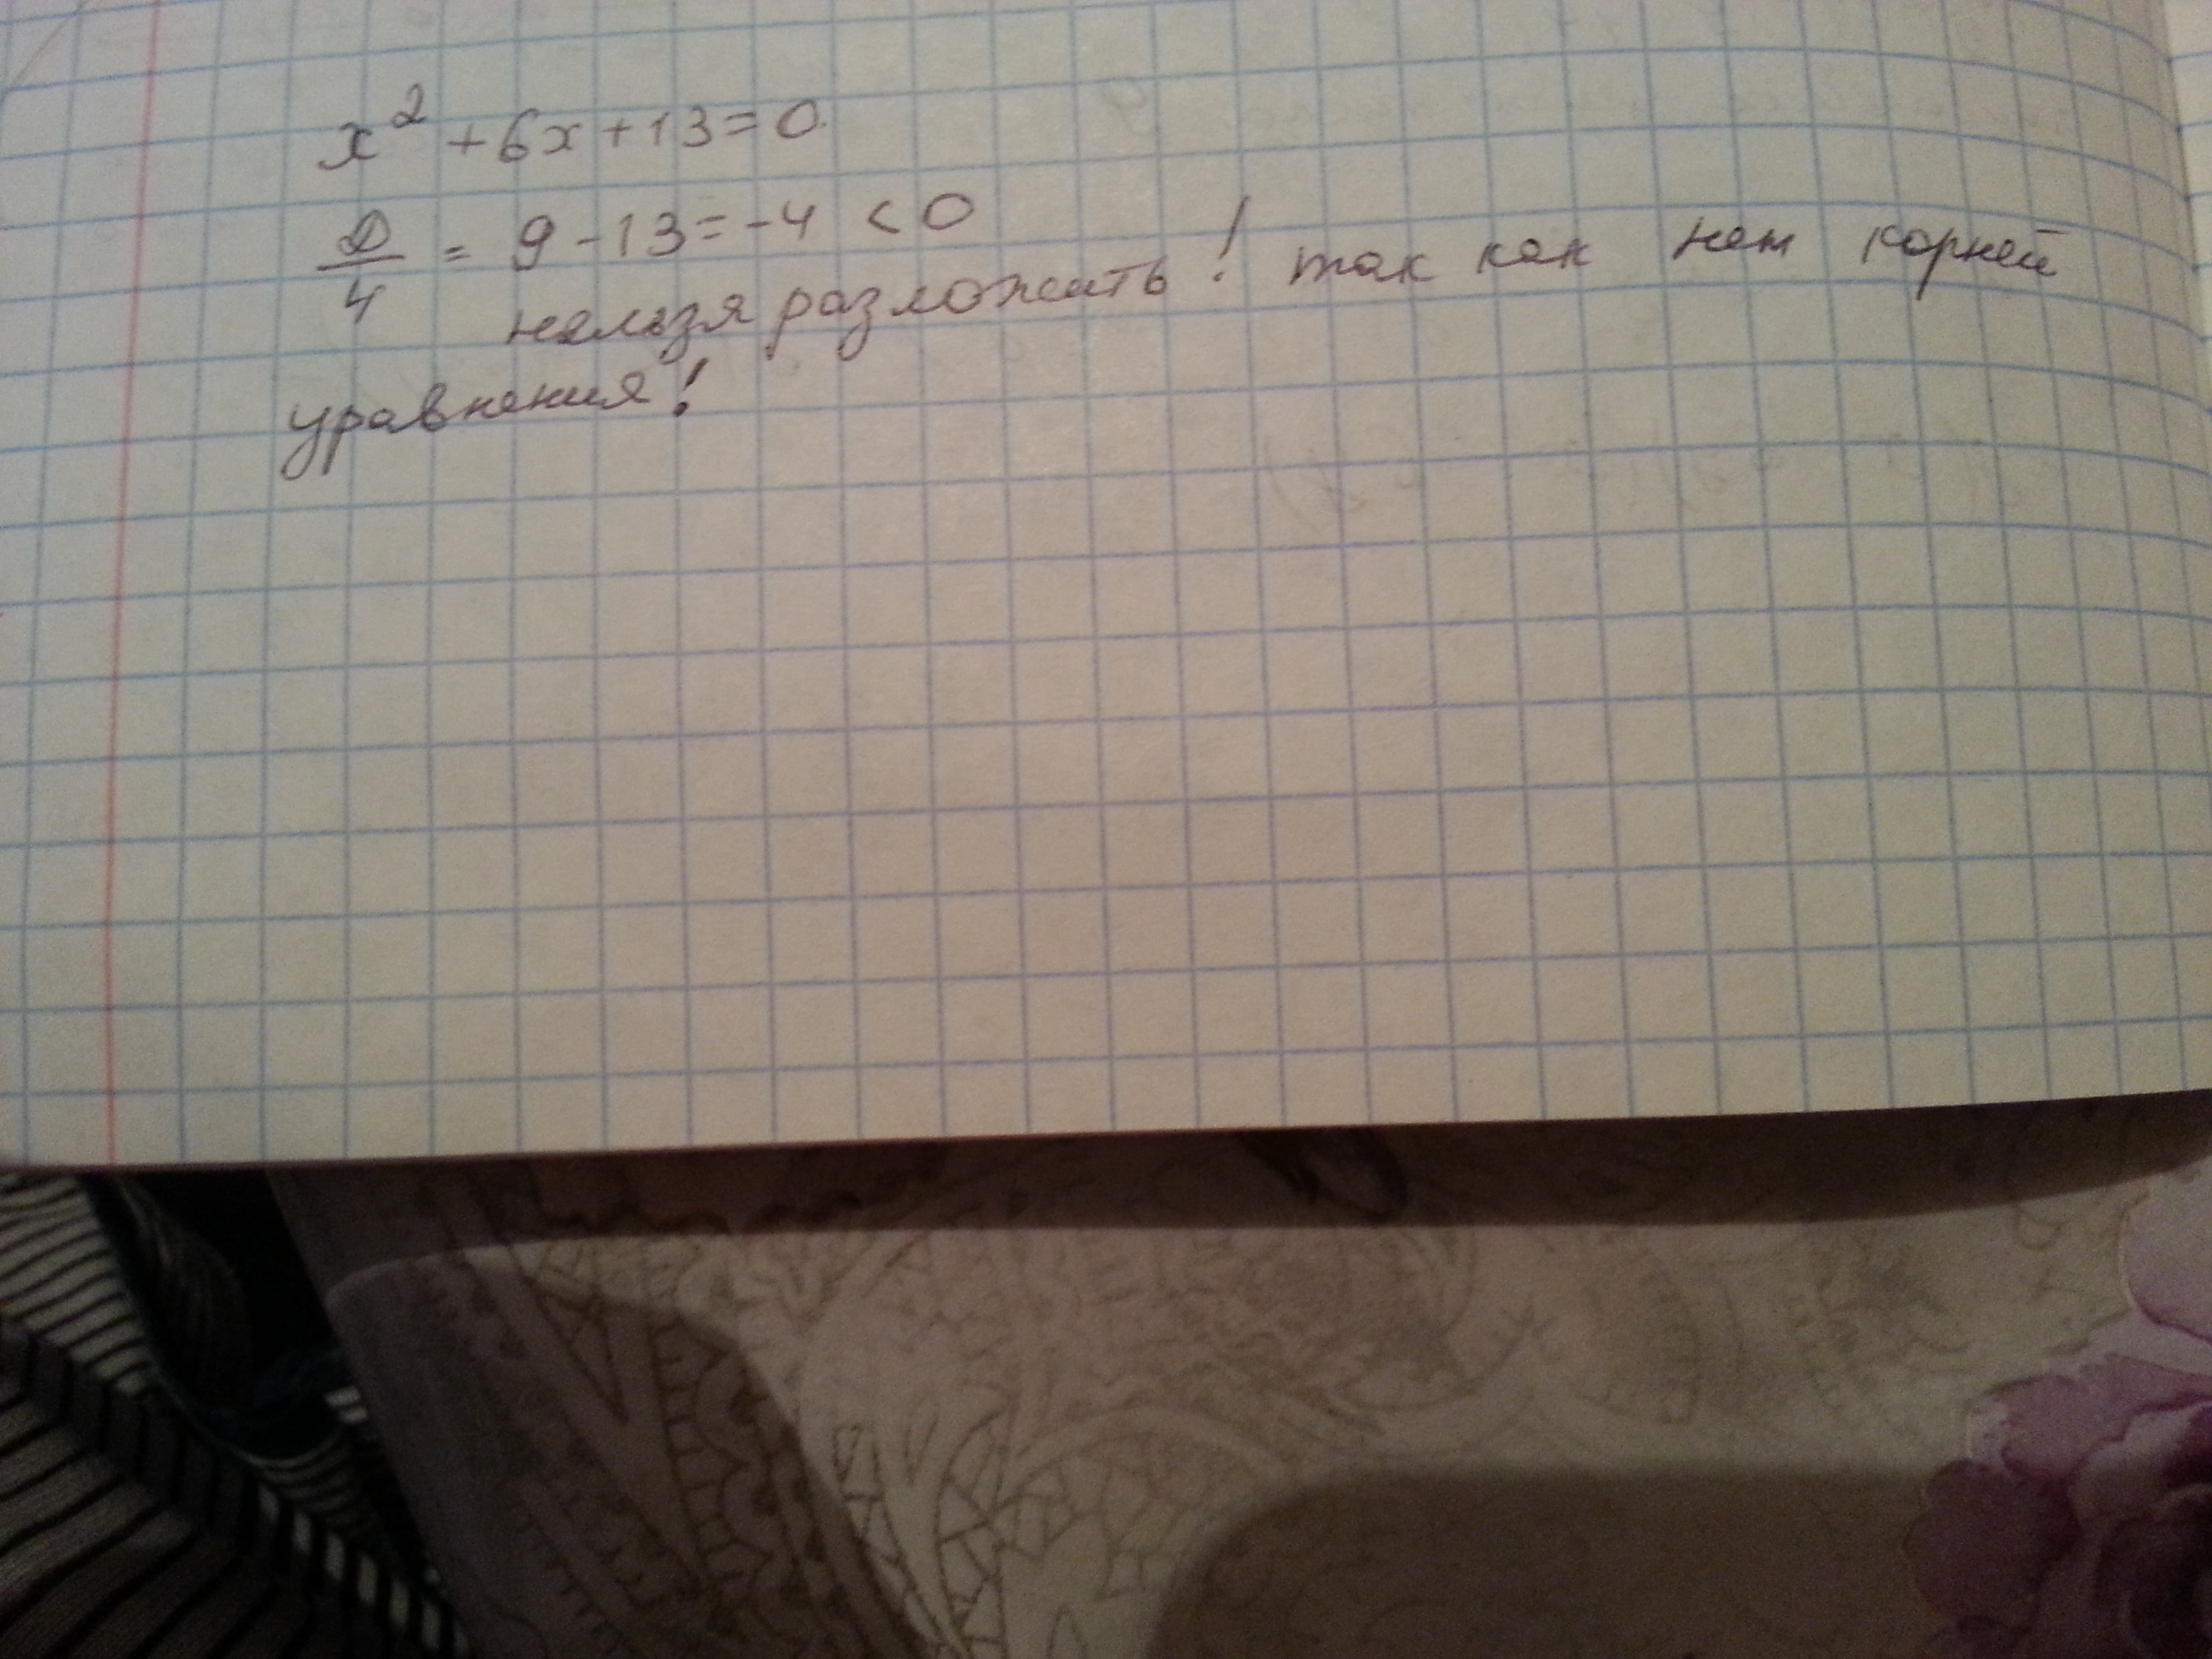 x² + 6x + 13 = 0.
D/4 = 9 - 13 = -4 < 0
нельзя разложить! так как нет корней
уравнения!